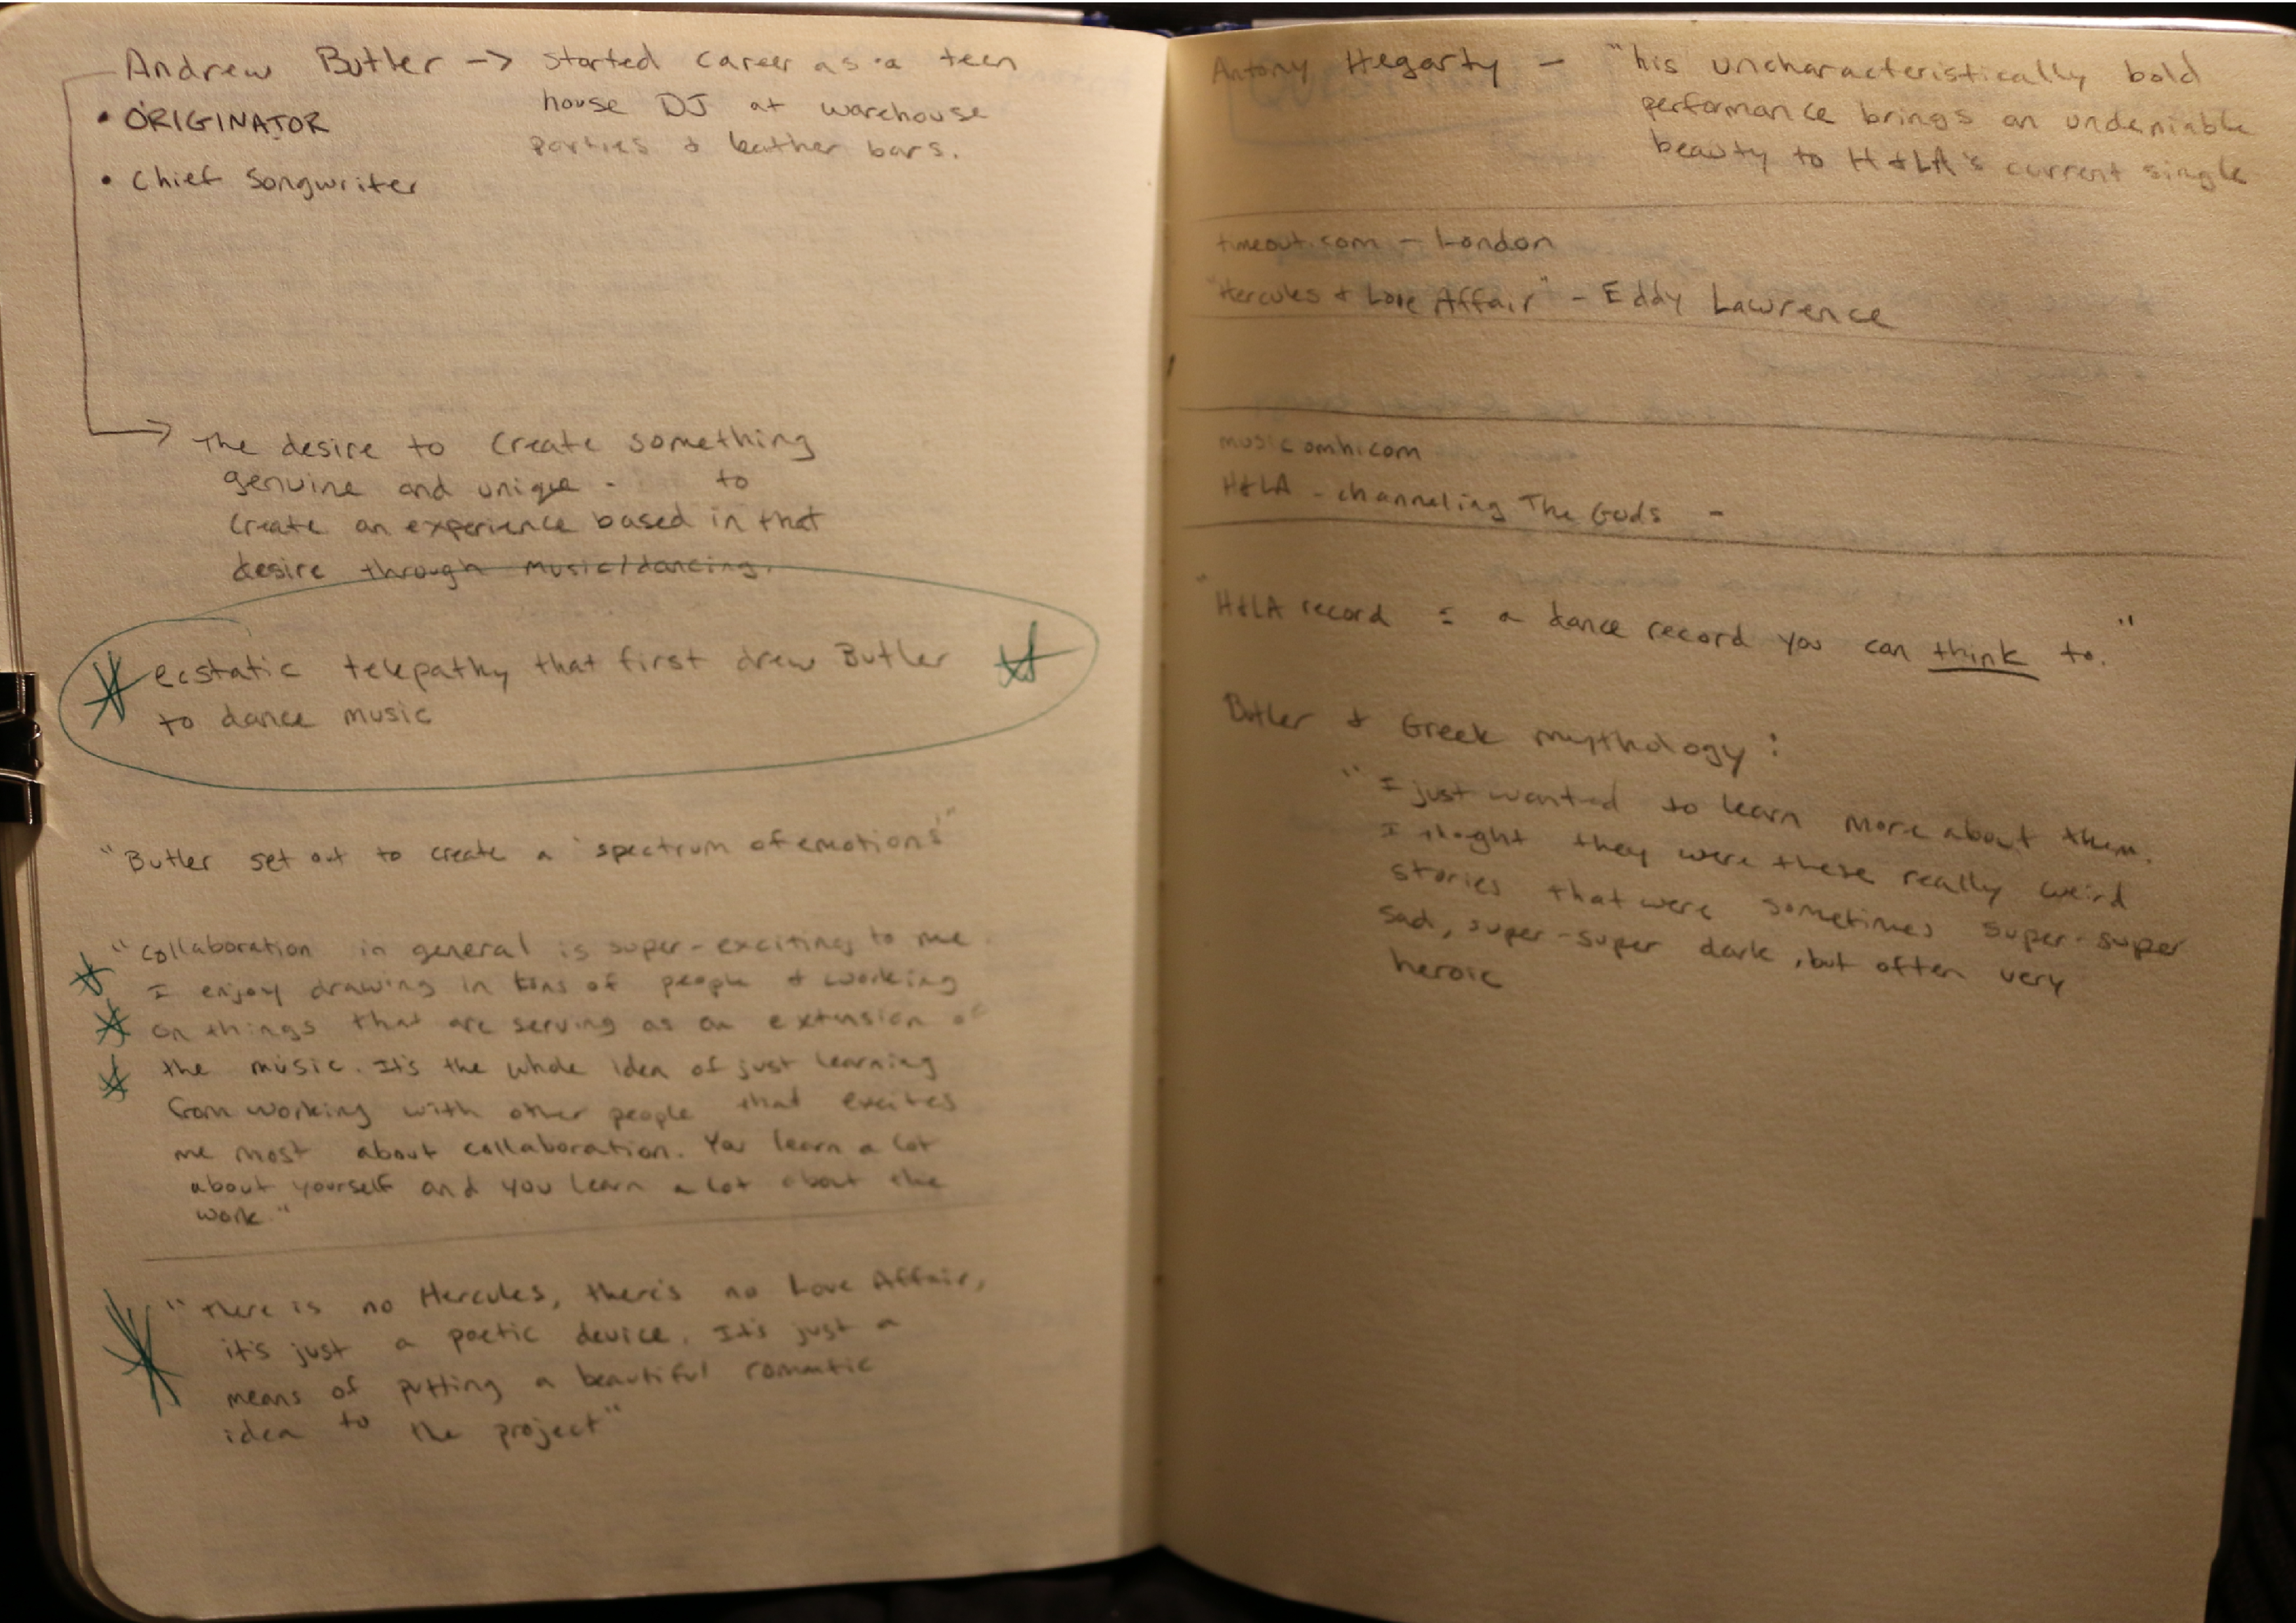 Andrew Butler → started career as a teen
house DJ at warehouse
parties & leather bars.
• ORIGINATOR
• Chief Songwriter
The desire to create something
genuine and unique - to
create an experience based in that
desire through music/dancing.
ecstatic telepathy that first drew Butler
to dance music
"Butler set out to create a 'spectrum of emotions'"
"Collaboration in general is super-exciting to me.
I enjoy drawing in tons of people & working
on things that are serving as an extension of
the music. It's the whole idea of just learning
from working with other people that excites
me most about collaboration. You learn a lot
about yourself and you learn a lot about the
work."
"There is no Hercules, there's no Love Affair,
it's just a poetic device. It's just a
means of putting a beautiful romantic
idea to the project"
Antony Hegarty - "his uncharacteristically bold
performance brings an undeniable
beauty to H&LA's current single
timeout.com - London
"Hercules & Love Affair" - Eddy Lawrence
musicomh.com
H&LA - channeling The Gods -
"H&LA record = a dance record you can think to."
Butler & Greek mythology:
"I just wanted to learn more about them.
I thoght they were these really weird
stories that were sometimes super-super
sad, super-super dark, but often very
heroic